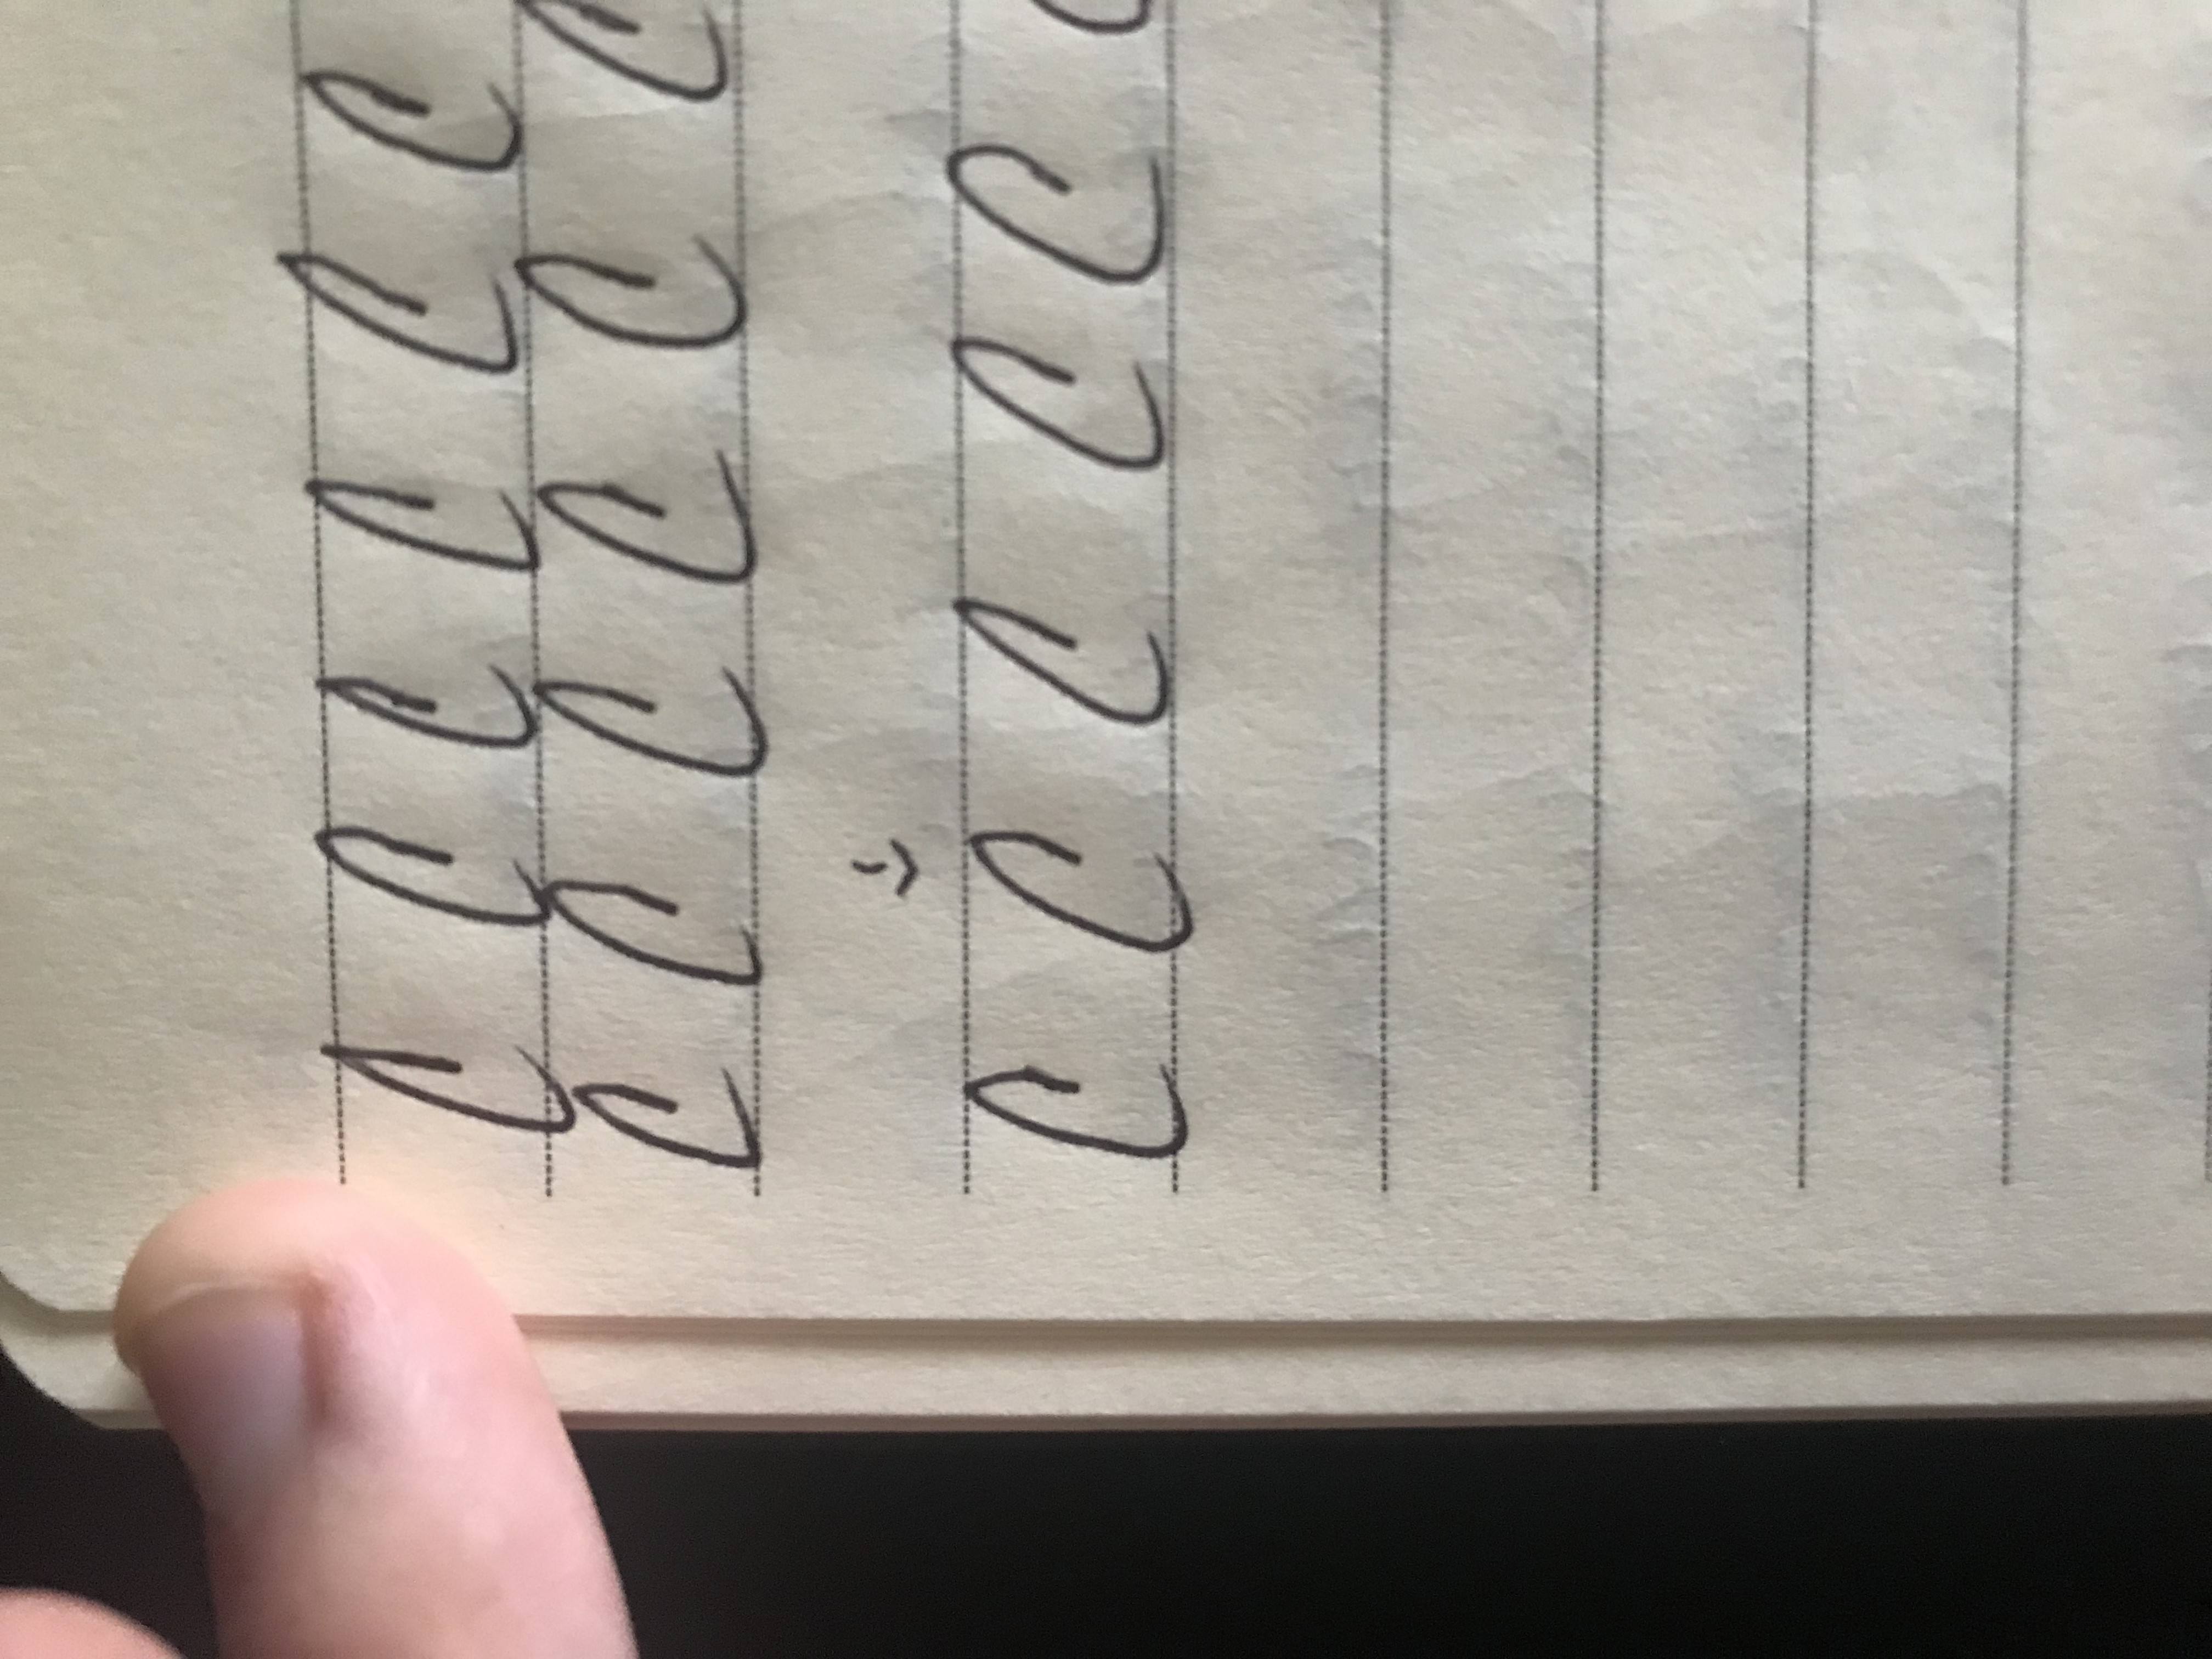 C C C C C C
C C C C C C
C C C C C C